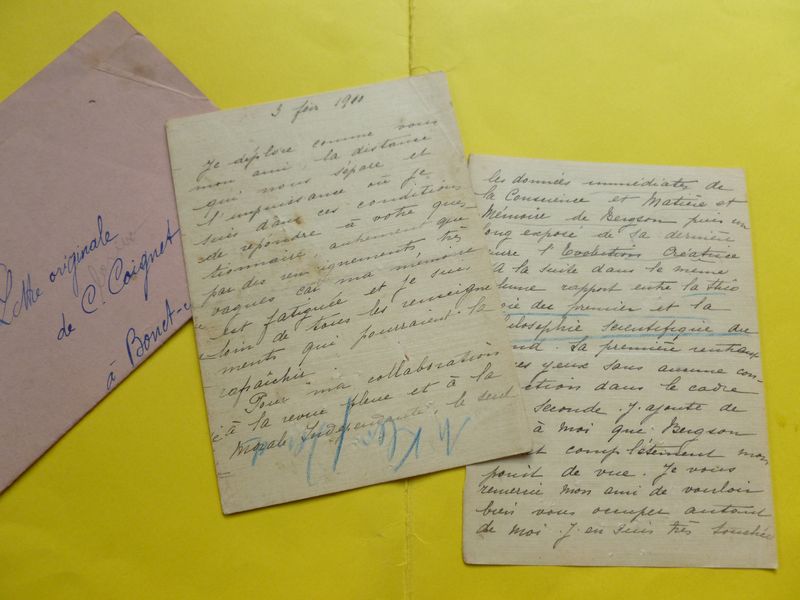 Lettre originale
de C. Coignet
à Bonet-
3 fév 1900
Je déplore comme vous
mon ami la distance
qui nous sépare et
l'impuissance où je
suis dans ces conditions
de répondre à votre ques
tionnaire autrement que
par des renseignements très
vagues car ma mémoire
est fatiguée et je suis
loin de tous les renseigne
ments qui pourraient la
rafraîchir.
Pour ma collaboration
à la revue bleue et à la
Morale Indépendante, le seul
les données immédiates de
la Conscience et Matière et
Mémoire de Bergson puis un
long exposé de sa dernière
l'Evolution Créatrice
à la suite dans le même
rapport entre la théo
du premier et la
philosophie scientifique du
la première rentrant
yeux sans aucune con
dans le cadre
seconde. J'ajoute de
à moi que Bergson
complètement mon
point de vue. Je vous
remercie mon ami de vouloir
bien vous occuper autant
de moi. J'en suis très touchée